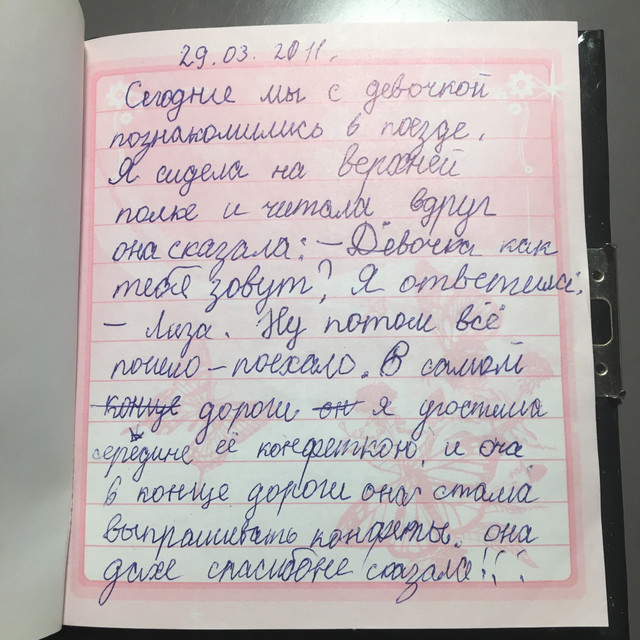 29.03.2011.
Сегодние мы с девочкой
познакомились в поезде.
Я сидела на верхней
полке и читала вдруг
она сказала: – Дёвочка как
тебя зовут? Я ответила;
– Лиза. Ну потом всё
пошло – поехало. В самом
конце дороги он я угостила
середине её конфеткою, и она
в конце дороги она стала
выпрашивать конфеты. она
даже спасибоне сказала!!!